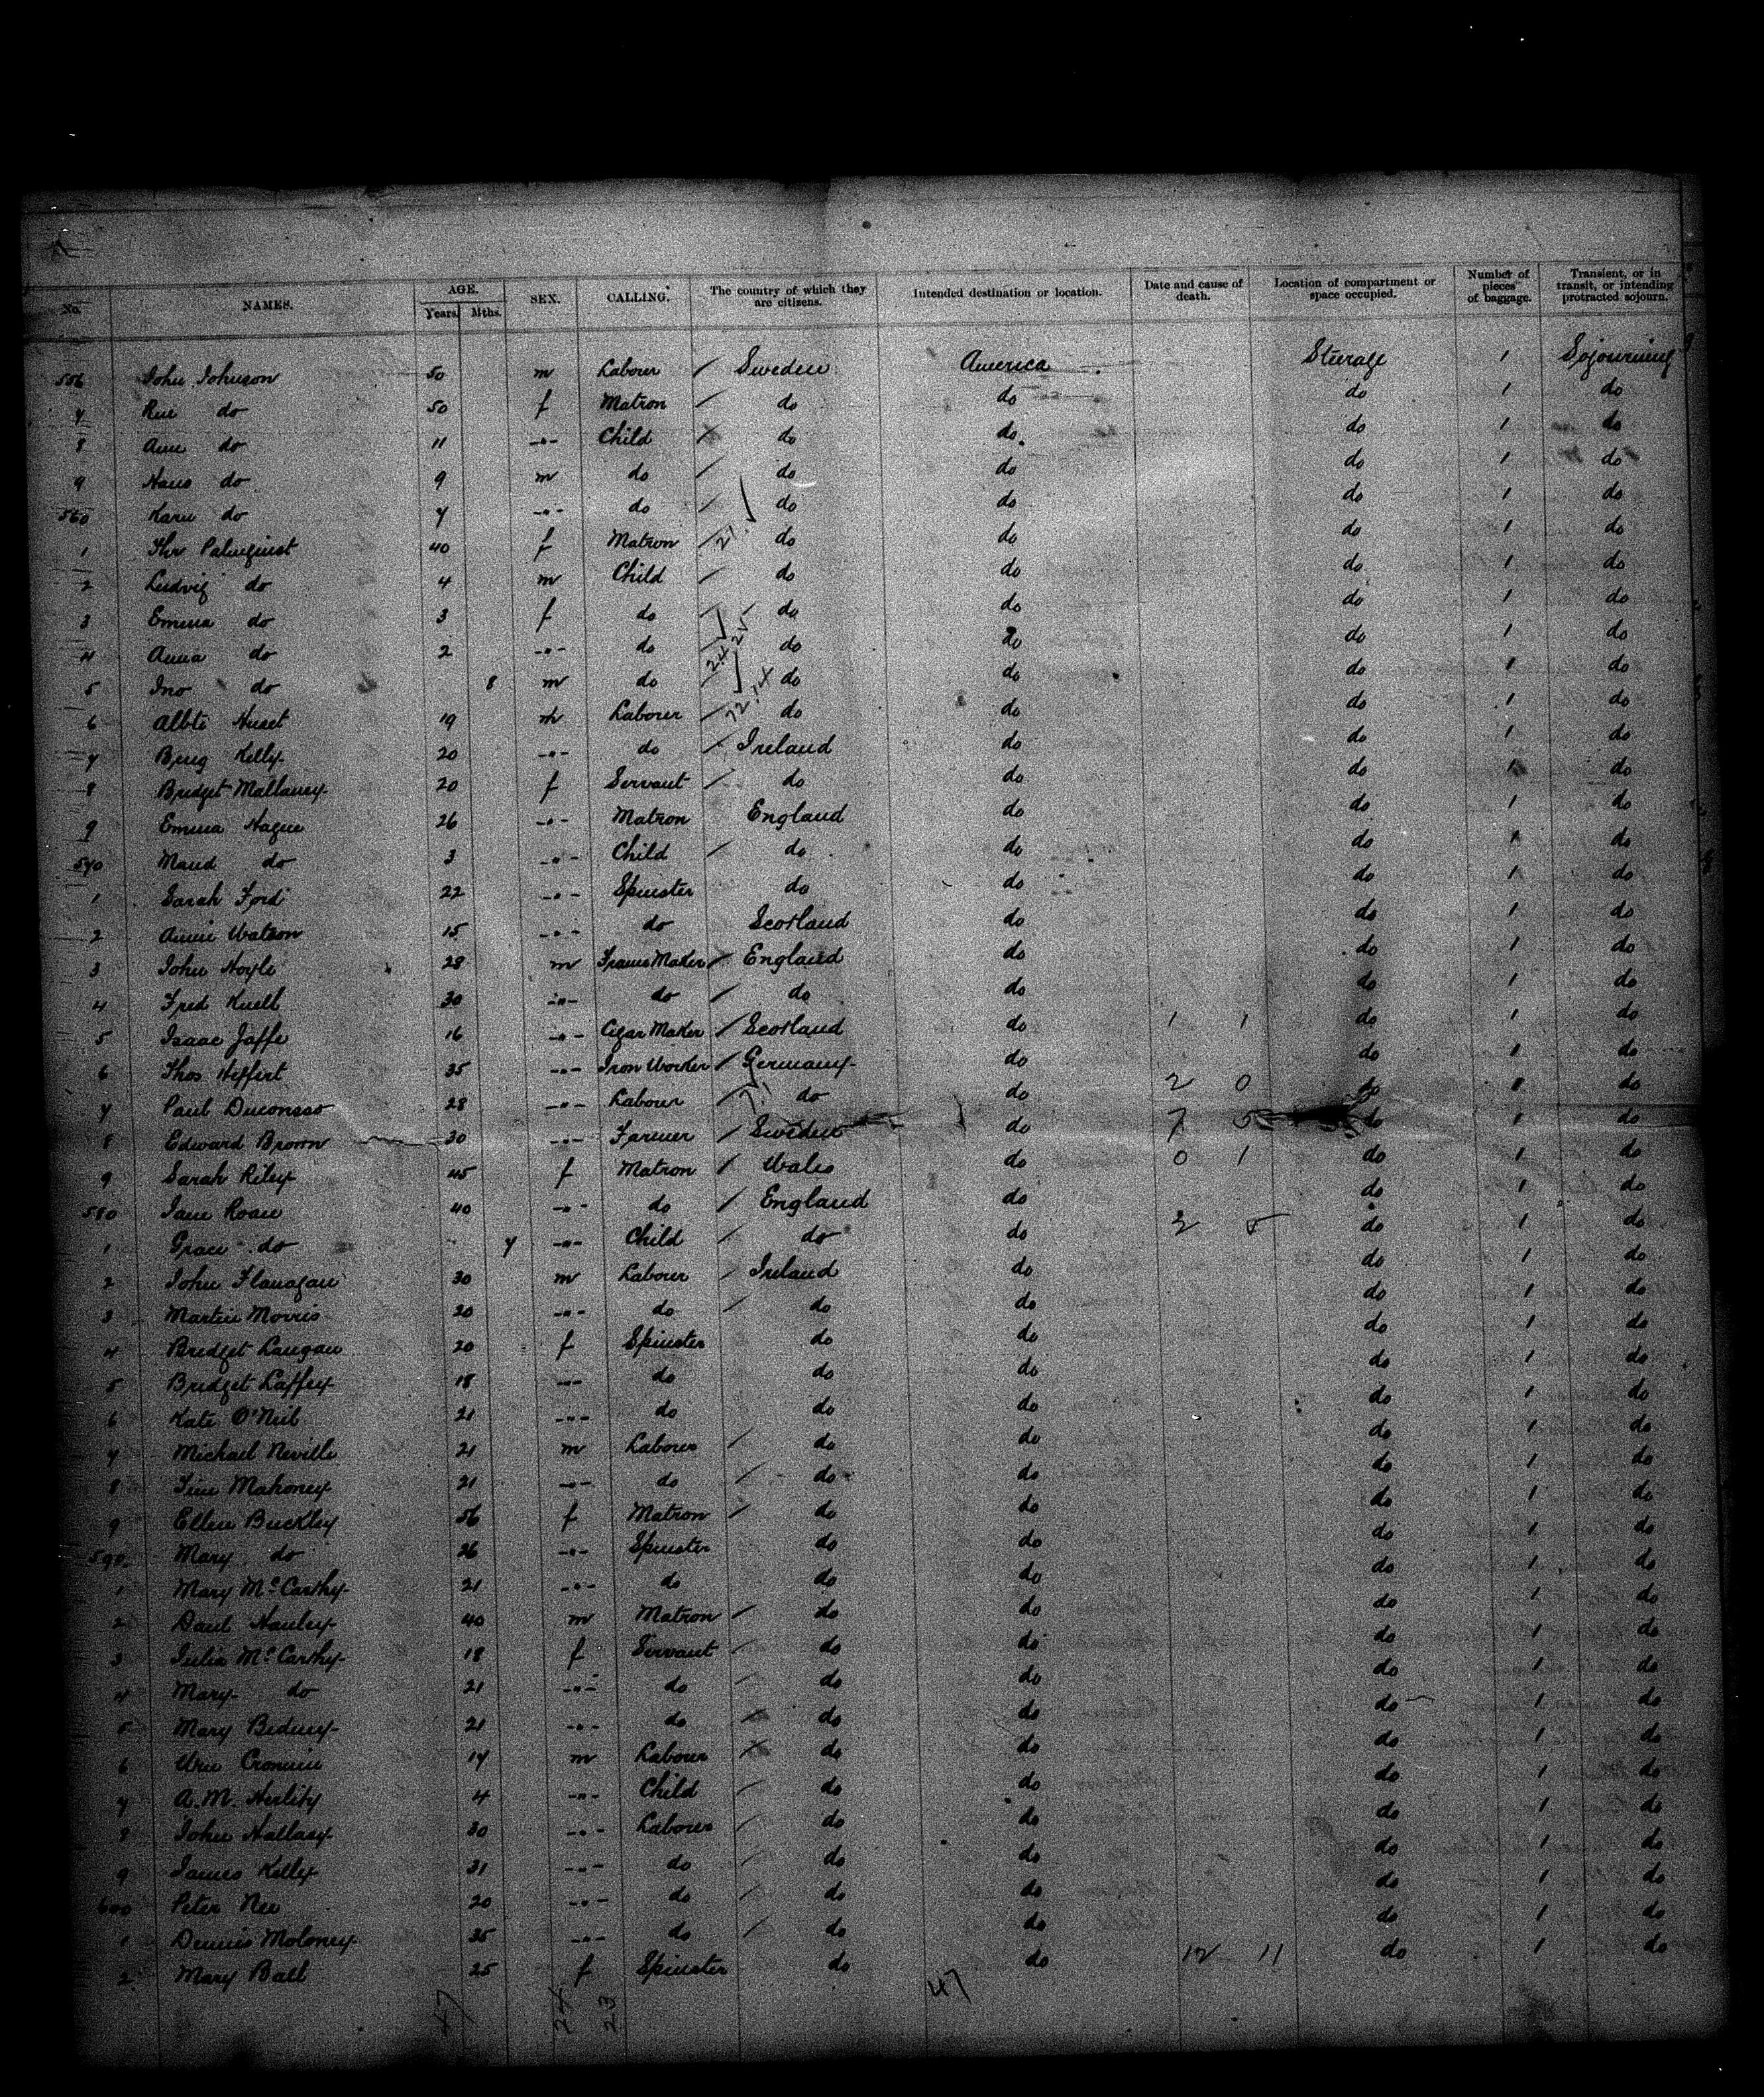 No. NAMES. AGE. Years Mths. SEX. CALLING. The country of which they are citizens. Intended destination or location. Date and cause of death. Location of compartment or space occupied. Number of pieces of baggage. Transient, or in transit, or intending protracted sojourn.
556 John Johnson 50 m Labourer Sweden America Steerage 1 Sojourning
7 do 50 f Matron do do do 1 do
8 Ann do 11 -"- Child do do do 1 do
9 Hans do 9 m do do do do 1 do
560 Karu do 7 -"- do do do do 1 do
1 Palmquist 40 f Matron do do do 1 do
2 Ludvig do 4 m Child do do do 1 do
3 Emma do 3 f do do do do 1 do
4 Anna do 2 -"- do do do do 1 do
5 Jno do 8 m do do do do 1 do
6 Albte Huset 19 m Laborer do do do 1 do
7 Benj Kelly 20 -"- do Ireland do do 1 do
8 Bridget Mallaney 20 f Servant do do do 1 do
9 Emma Hague 26 -"- Matron England do do 1 do
570 Maud do 3 -"- Child do do do 1 do
1 Sarah Ford 22 -"- Spinster do do do 1 do
2 Annie Watson 15 -"- do Scotland do do 1 do
3 John Hoyle 28 m Frame Maker England do do 1 do
4 Fred Knell 30 -"- do do do do 1 do
5 Isaac Jaffe 16 -"- Cigar Maker Scotland do 1 1 do 1 do
6 Thos Heffert 35 -"- Iron Worker Germany do do 1 do
7 Paul 28 -"- Labourer do do 2 0 do 1 do
8 Edward Brown 30 -"- Farmer Sweden do 7 5 do 1 do
9 Sarah Riley 45 f Matron Wales do 0 1 do 1 do
580 Jane Roan 40 -"- do England do do 1 do
1 Grace do 7 -"- Child do do 2 5 do 1 do
2 John Flanagan 30 m Labourer Ireland do do 1 do
3 Martin Morris 20 -"- do do do do 1 do
4 Bridget Langan 20 f Spinster do do do 1 do
5 Bridget Laffey 18 -"- do do do do 1 do
6 Kate O'Neil 21 -"- do do do do 1 do
7 Michael Neville 21 m Labourer do do do 1 do
8 Tim Mahoney 21 -"- do do do do 1 do
9 Ellen Buckley 56 f Matron do do do 1 do
590 Mary do 26 -"- Spinster do do do 1 do
1 Mary McCarthy 21 -"- do do do do 1 do
2 Danl Hanley 40 m Matron do do do 1 do
3 Julia McCarthy 18 f Servant do do do 1 do
4 Mary do 21 -"- do do do do 1 do
5 Mary Bedney 21 -"- do do do do 1 do
6 Wm Cronin 17 m Labourer do do do 1 do
7 A.M. Herlihy 4 -"- Child do do do 1 do
8 John Hallasy 30 -"- Labourer do do do 1 do
9 James Kelly 31 -"- do do do do 1 do
600 Peter Nee 20 -"- do do do do 1 do
1 Dennis Moloney 35 -"- do do do do 1 do
2 Mary Ball 25 f Spinster do do 12 11 do 1 do
47 24 23 47